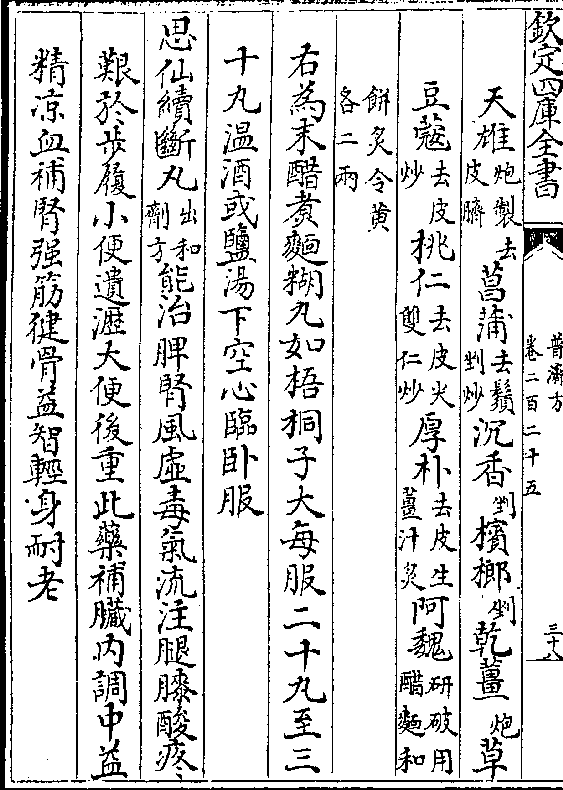 欽定四庫全書
普濟方
卷二百二十五
三十八
天雄炮製去皮臍 菖蒲去鬚剉炒 沉香剉 檳榔剉 乾薑炮 草
豆蔻去皮炒 桃仁去皮尖雙仁炒 厚朴去皮生薑汁炙 阿魏研破用醋麵和
餅炙令黄各二兩
右為末醋煮麵糊丸如梧桐子大每服二十丸至三
十丸温酒或鹽湯下空心臨卧服
思仙續斷丸出和劑方 能治脾腎風虚毒氣流注腿膝酸疼
艱於步履小便遺瀝大便後重此藥補臟内調中益
精凉血補腎强筋健骨益智輕身耐老